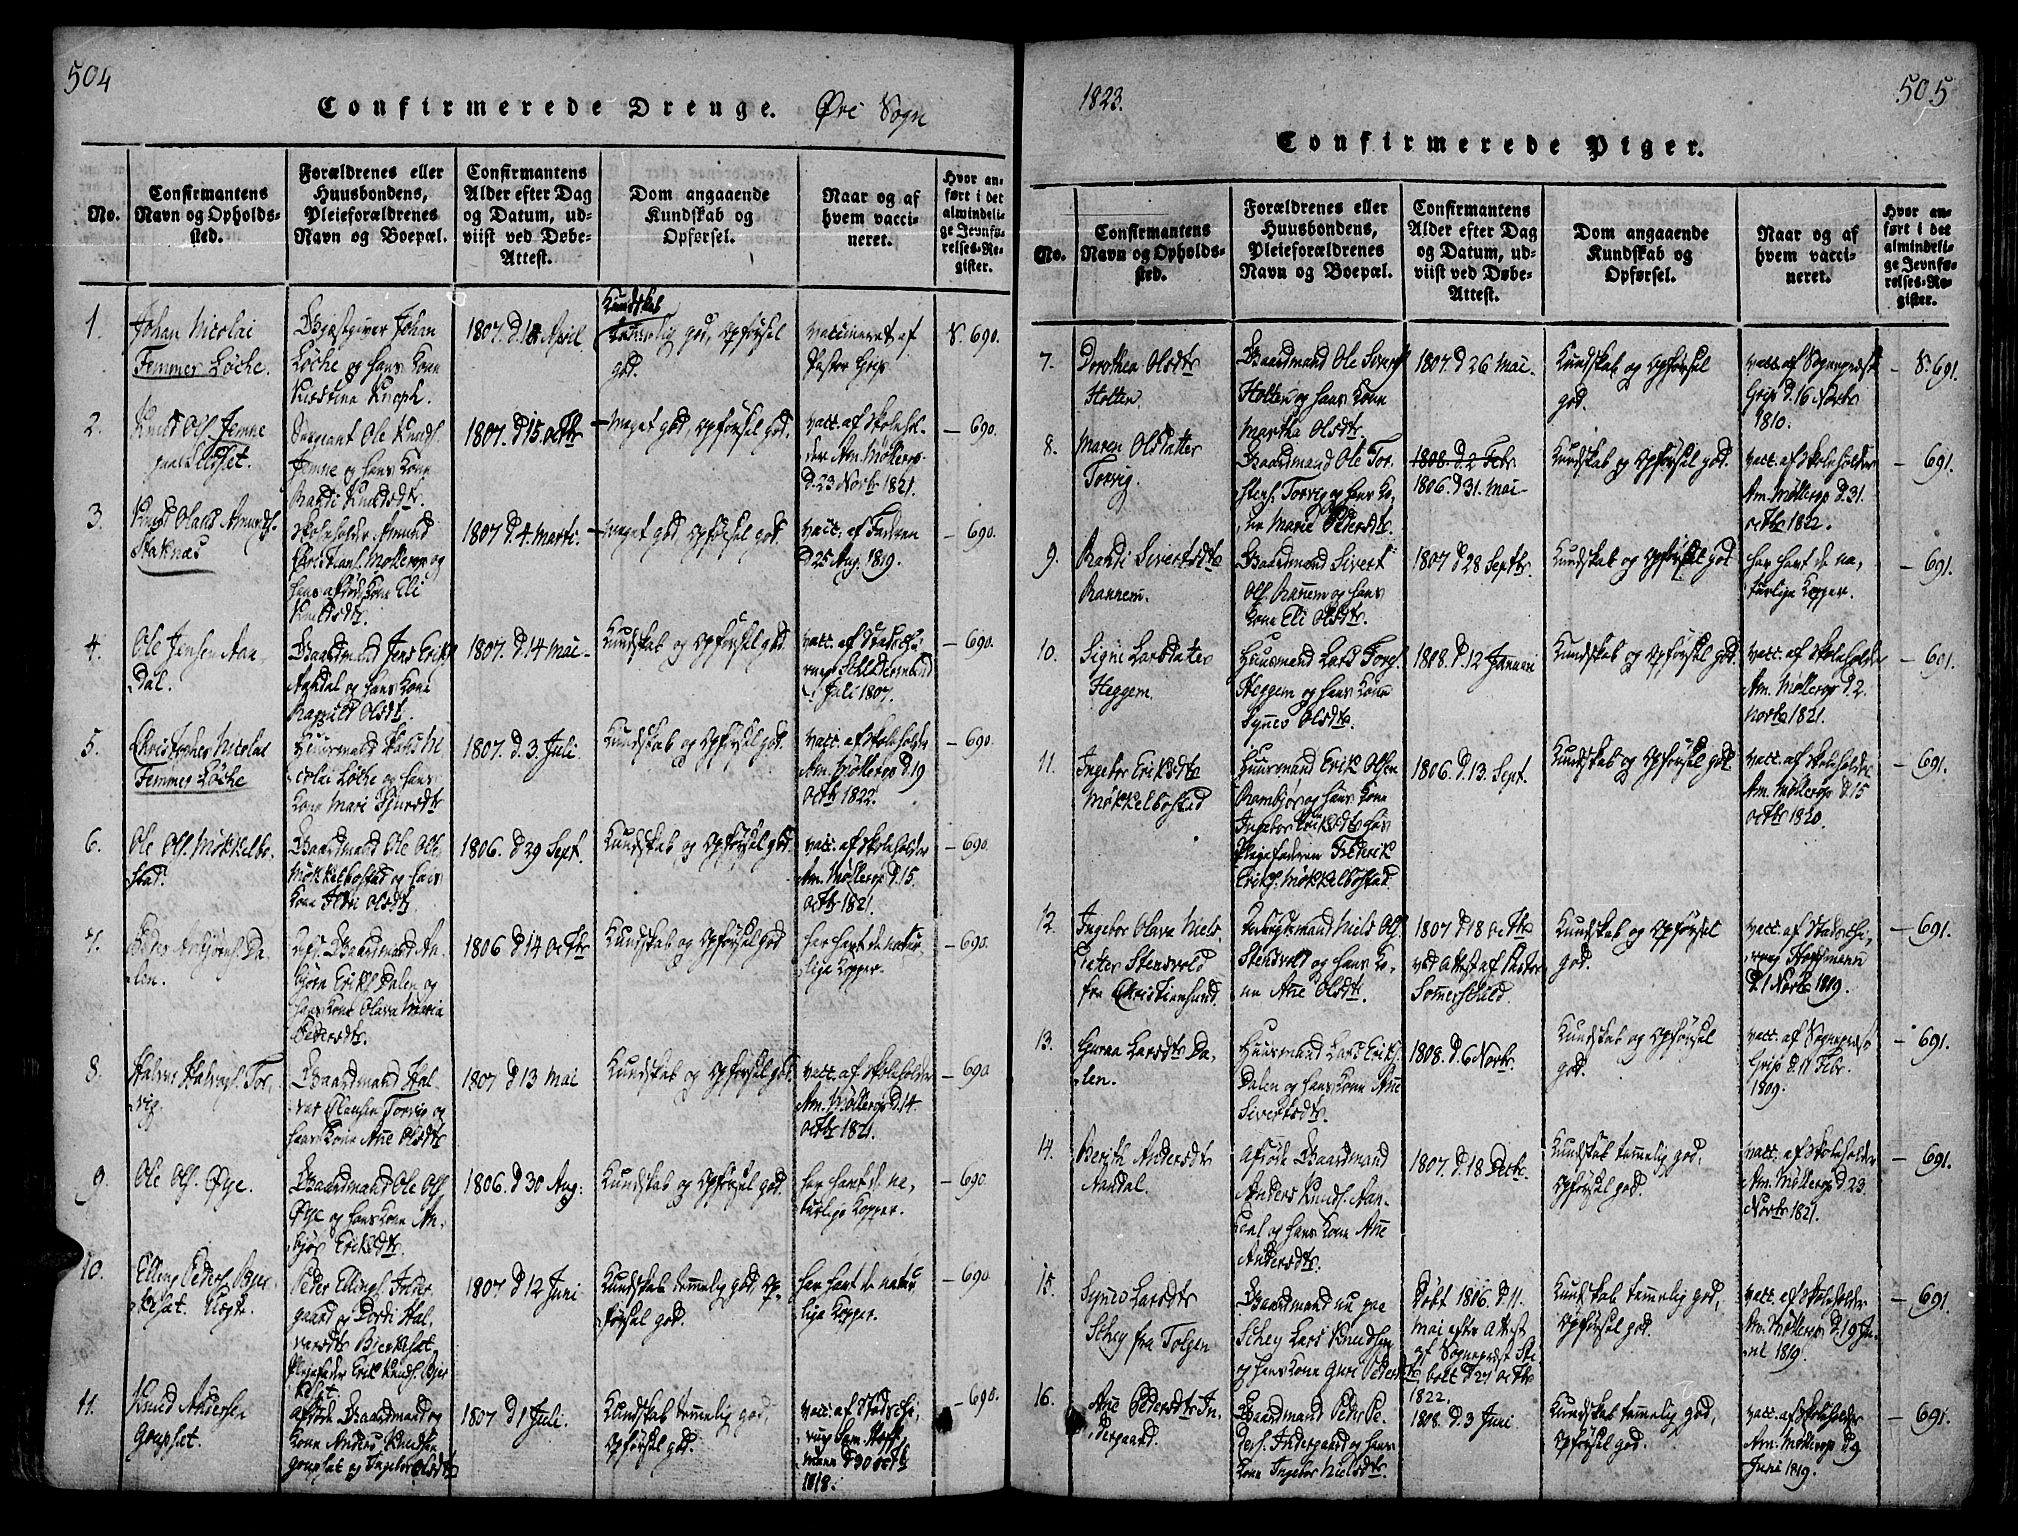 504
Confirmerede Drenge. Øre Sogn
No.
Confirmantens Navn og Opholdssted.
Forældrenes eller Huusbondens, Pleieforældrenes Navn og Boepæl.
Confirmantens Alder efter Dag og Datum, udviist ved Døbe-Attest.
Dom angaaende Kundskab og Opførsel.
Naar og af hvem vaccineret.
Hvor anført i det almindelige Jevnførelses-Register.
1.
Johan Nicolai
Femmer Löche.
Gjæstgiver Johan
Löche og hans Kone
Knoph.
1807. d. April
Kundskab
temmelig god, Opförsel
god.
vaccineret af
Pastor Grip
S. 690.
2.
Knud Ols. Jemne
Sergeant Ole Knuds.
Jemne og hans Kone
Randi Knudsdtr
1807. d. 15. Octbr
meget god, Opförsel god.
vacc. af Skolehol-
der Am. Møllerop
d. 23 Novbr 1821.
690.
3.
Knud Olaus Amunds.
Staknes
Skoleholder Amund
Christians. Møllerop og
hans afdöde Kone Eli
Knudsdtr.
1807 d. 4. Marti.
meget god Opförsel god.
vacc. af Faderen
d 25 Aug. 1819.
690.
4.
Ole Jensen Aan-
dal.
Gaardmand Jens Eriks.
Aandal og hans Kone
Olsdtr.
1807. d. 14 Mai
Kundskab og Opförsel god
vacc. af Stadschi-
Juli 1807.
690.
5.
Christopher Nicolai
Femmer Löche
Huusmand
Löche og hans
Kone Mari
1807. d. 3. Juli.
Kundskab og Opförsel god.
vacc. af Skoleholder
Am. Møllerop d. 19
Octbr 1822.
690.
6.
Ole Ols. Møkkelbo-
stad.
Gaardmand Ole Ols.
Møkkelbostad og hans
Kone Olsdtr
1806. d 29 Sept.
Kundskab og Opförsel god.
vacc. af Skoleholder
Am. Møllerop d. 15.
Octbr 1821.
690.
7.
Peder Da-
len.
Gaardmand An-
björn Eriks. Dalen og
hans Kone Olava Maria
Pedersdtr.
1806 d 14 Octbr
Kundskab og Opförsel god
har havt de natur-
lige Kopper.
690.
8.
Halvor Halvors. Tor-
vig.
Gaardmand Hal-
vor Torvig og
hans Kone Ane Olsdtr
1807 d 13 Mai
Kundskab og Opförsel god.
vacc. af Skoleholder
Am. Møllerop d. 14.
Octbr 1821.
690
9.
Ole Ols. Øye.
Gaardmand Ole Ols.
Øye og hans Kone An-
björ Eriksdtr.
1806. d 30 Aug:
Kundskab og Opförsel god.
har havt d. na-
turlige Kopper.
690.
10.
Elling Peders. Bjer-
keset.
Peder Ellings. Inder-
gaard og Hal-
vorsdtr Bjerkeset.
Pleiefader Erik Knuds. Bjer
keset.
1807 d 12 Juni
Kundskab temmelig god, Op-
försel god.
har havt de natur-
lige Kopper.
690
11.
Knud Andersen
Goupset.
afdöde Gaardmand og
Kone Anders Knudsen
Goupset og Ingebor Olsdtr
1807 d 1 Juli.
Kundskab temmelig god
Opförsel god.
vacc. af Stadschi-
rurg Sam. Hoff-
mann d 30 Octb
1818.
690.
1823.
505
Confirmerede Piger.
No.
Confirmantens Navn og Opholdssted.
Forældrenes eller Huusbondens, Pleieforældrenes Navn og Boepæl.
Confirmantens Alder efter Dag og Datum, udviist ved Døbe-Attest.
Dom angaaende Kundskab og Opførsel.
Naar og af hvem vaccineret.
Hvor anført i det almindelige Jevnførelses-Register.
7.
Dorothea Olsdtr
Holten.
Gaardmand Ole Siverts.
Holten og hans Kone
Martha Olsdtr
1807. d 26 Mai
Kundskab og Opförsel
god.
vacc. af Sognepræst
Grip d. 16 Novbr
1810.
S. 691.
8.
Maren Olsdatter
Torvig.
Gaardmand Ole Tor-
stens. Torvig og hans Ko-
ne Marie Pedersdtr.
1808. d. 2 Febr
1806. d. 31. Mai
Kundskab og Opförsel god.
vacc. af Skoleholder
Am. Møllerop d. 31.
Octbr 1822.
691.
9.
Randi Sivertsdtr
Rannem.
Gaardmand Sivert
Ols. Ranem og hans
Kone Eli Olsdtr.
1807 d 28 Septbr.
Kundskab og Opförsel god
har havt de na-
turlige Kopper.
691.
10.
Signi Larsdatter
Heggem.
Huusmand Lars
Heggem og hans Kone
Synev Olsdtr.
1808. d. 12 Januari
Kundskab og Opförsel god.
vacc. af Skoleholder
Am. Møllerop d. 2.
Novbr 1821.
601.
11.
Ingebor Eriksdtr
Møkkelbostad
Huusmand Erik Olsen
og hans Kone
Ingebor hans
Pleiefaderen Frederik
Eriks. Møkkelbostad.
1806. d. 13. Sept.
Kundskab og Opförsel god.
vacc. af Skoleholder
Am. Møllerop d. 15
Octbr 1820.
691.
12.
Ingebor Olava Niels-
datter Stensvold
fra Christiansund.
Niels Ols.
Stensvold og hans Ko-
ne Ane Olsdtr.
1807 d 18 Octbr
ved Attest af Pastor
Sommerschild.
Kundskab og Opförsel
god.
vacc. af Stadschi-
rurg Hoffmann
d. 1 Novbr 1819.
691.
13.
Guraa Larsdtr Da-
len.
Huusmand Lars Eriks.
Dalen og hans Kone Ane
Sivertsdtr.
1808. d. 6 Novbr.
Kundskab og Opförsel
god.
vacc. af Sognepræst
Grip d. 11 Febr.
1809.
691.
14.
Berith Andersdtr
Aandal.
Afdöde Gaardmand
Anders Knuds. Aan-
dal og hans Kone Ane
Andersdtr.
1807. d. 18 Decbr.
Kundskab temmelig god,
Opförsel god.
vacc. af Skoleholder
Am. Møllerop d 23
Novbr 1821.
691.
15.
Synev Larsdtr
Schey fra Tolgen
Gaardmand nu paa
Schey Lars Knudsen
og hans Kone Guri Pedersdtr
Döbt 1806. d. 11.
Mai efter Attest
af Sognepræst Ste-
d 27 Octbr
1822.
Kundskab temmelig god,
Opförsel god.
vacc. af Skoleholder
Am. Møllerop d. 19 Ju-
ni 1819.
691.
16.
Ane Pedersdtr In-
dergaard.
Gaardmand Peder Pe-
ders. Indergaard og hans
Kone Ingebor Nielsdtr.
1808. d. 3 Juni
Kundskab temmelig god,
Opförsel god.
vacc. af Skoleholder
Am. Møllerop d 9
Juni 1819.
691.